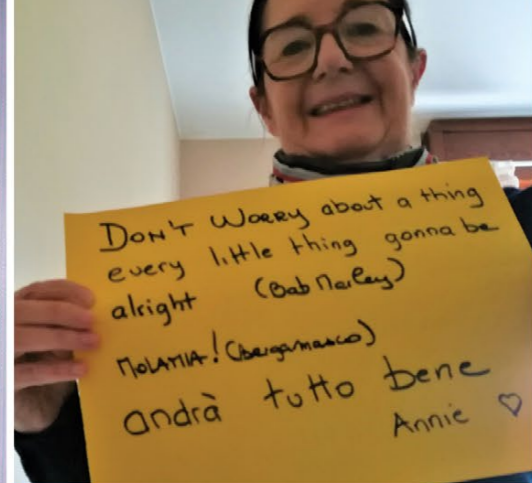 DON'T WORRY about a thing
every little thing gonna be
alright (Bob Marley)
MOLAMIA! (bergamasco)
andrà tutto bene
Annie ♡